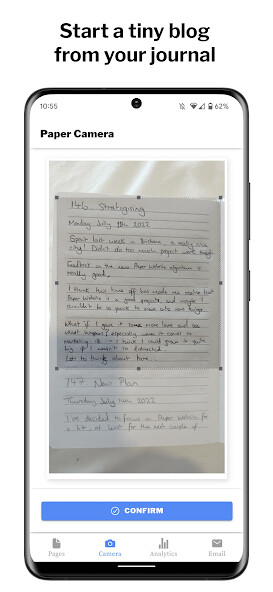 Start a tiny blog
from your journal
10:55
62%
Paper Camera
146 Strategising
Monday July 11th 2022
Spent last week in Brisbane - a really nice
city! Didn't do too much project work though
Feedback on the new Paper Website algorithm is
really good.
I think this time off has made me realise that
Paper Website is a good project, and maybe I
shouldn't be so quick to move onto new things.
What if I gave it some more love and see
what happens, especially when it comes to
marketing it - I think I could grow it quite
big if I wasn't so distracted.
Lots to think about here...
147 New Plan
Thursday July 14th 2022
I've decided to focus on Paper Website for
a bit, at least for the next couple of
CONFIRM
Pages
Camera
Analytics
Email